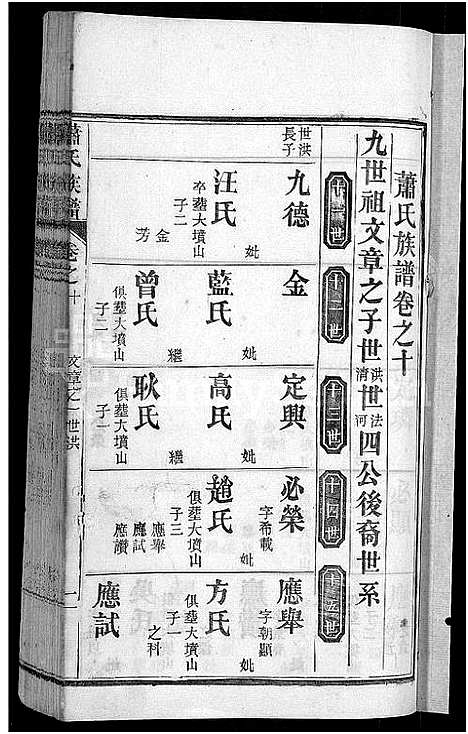 蕭氏族譜卷之十
九世祖文章之子世洪清世法河四公後裔世系
十一世
十二世
十三世
十四世
十五世
世洪長子
九德
妣
汪氏
卒塟大墳山
子二
金
芳
金
妣
藍氏
繼
曾氏
俱塟大墳山
子二
定興
妣
高氏
繼
耿氏
俱塟大墳山
子一
必榮
字希載
妣
趙氏
俱塟大墳山
子三
應舉
應試
應讚
應舉
字朝顯
妣
方氏
俱塟大墳山
子一
之科
應試
蕭氏族譜
卷之十
文章之子世洪